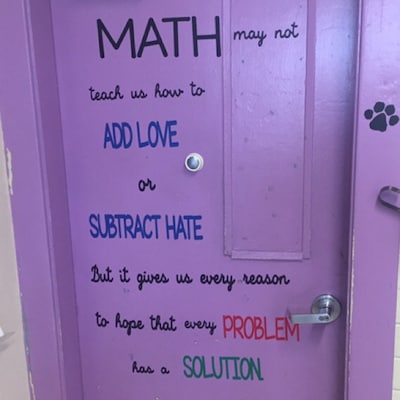 MATH may not
teach us how to
ADD LOVE
or
SUBTRACT HATE
But it gives us every reason
to hope that every PROBLEM
has a SOLUTION.